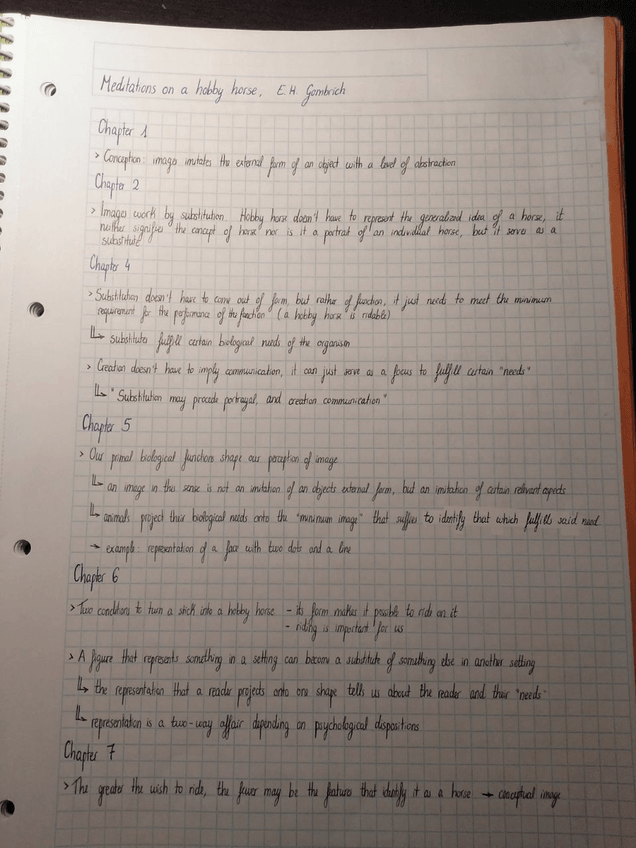 Meditations on a hobby horse, E.H. Gombrich
Chapter 1
> Conception: image imitates the external form of an object with a level of abstraction
Chapter 2
> Images work by substitution. Hobby horse doesn't have to represent the generalized idea of a horse, it
neither signifies the concept of horse nor is it a portrait of an individual horse, but it serves as a
substitute
Chapter 4
> Substitution doesn't have to come out of form, but rather of function, it just needs to meet the minimum
requirement for the performance of the function (a hobby horse is ridable)
↳ substitute fulfill certain biological needs of the organism
> Creation doesn't have to imply communication, it can just serve as a focus to fulfill certain "needs"
↳ "Substitution may precede portrayal, and creation communication"
Chapter 5
> Our primal biological functions shape our perception of image
↳ an image in this sense is not an imitation of an objects external form, but an imitation of certain relevant aspects
↳ animals project their biological needs onto the "minimum image" that suffies to identify that which fulfills said need
→ example: representation of a face with two dots and a line
Chapter 6
> Two conditions to turn a stick into a hobby horse - its form makes it possible to ride on it
- riding is important for us
> A figure that represents something in a setting can become a substitute of something else in another setting
↳ the representation that a reader projects onto one shape tells us about the reader and their "needs"
↳ representation is a two-way affair depending on psychological dispositions
Chapter 7
> The greater the wish to ride, the fewer may be the features that identify it as a horse → conceptual image